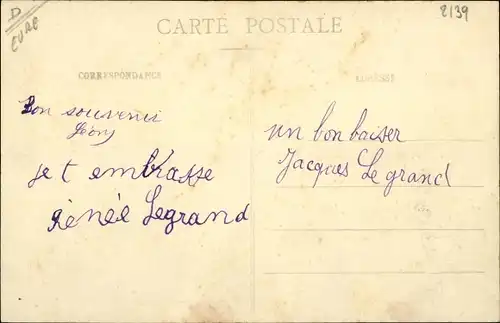 D
EURE
2139
CARTE POSTALE
CORRESPONDANCE
ADRESSE
Bon souvenir
Léon
je t embrasse
Renée Legrand
un bon baiser
Jacques Le grand